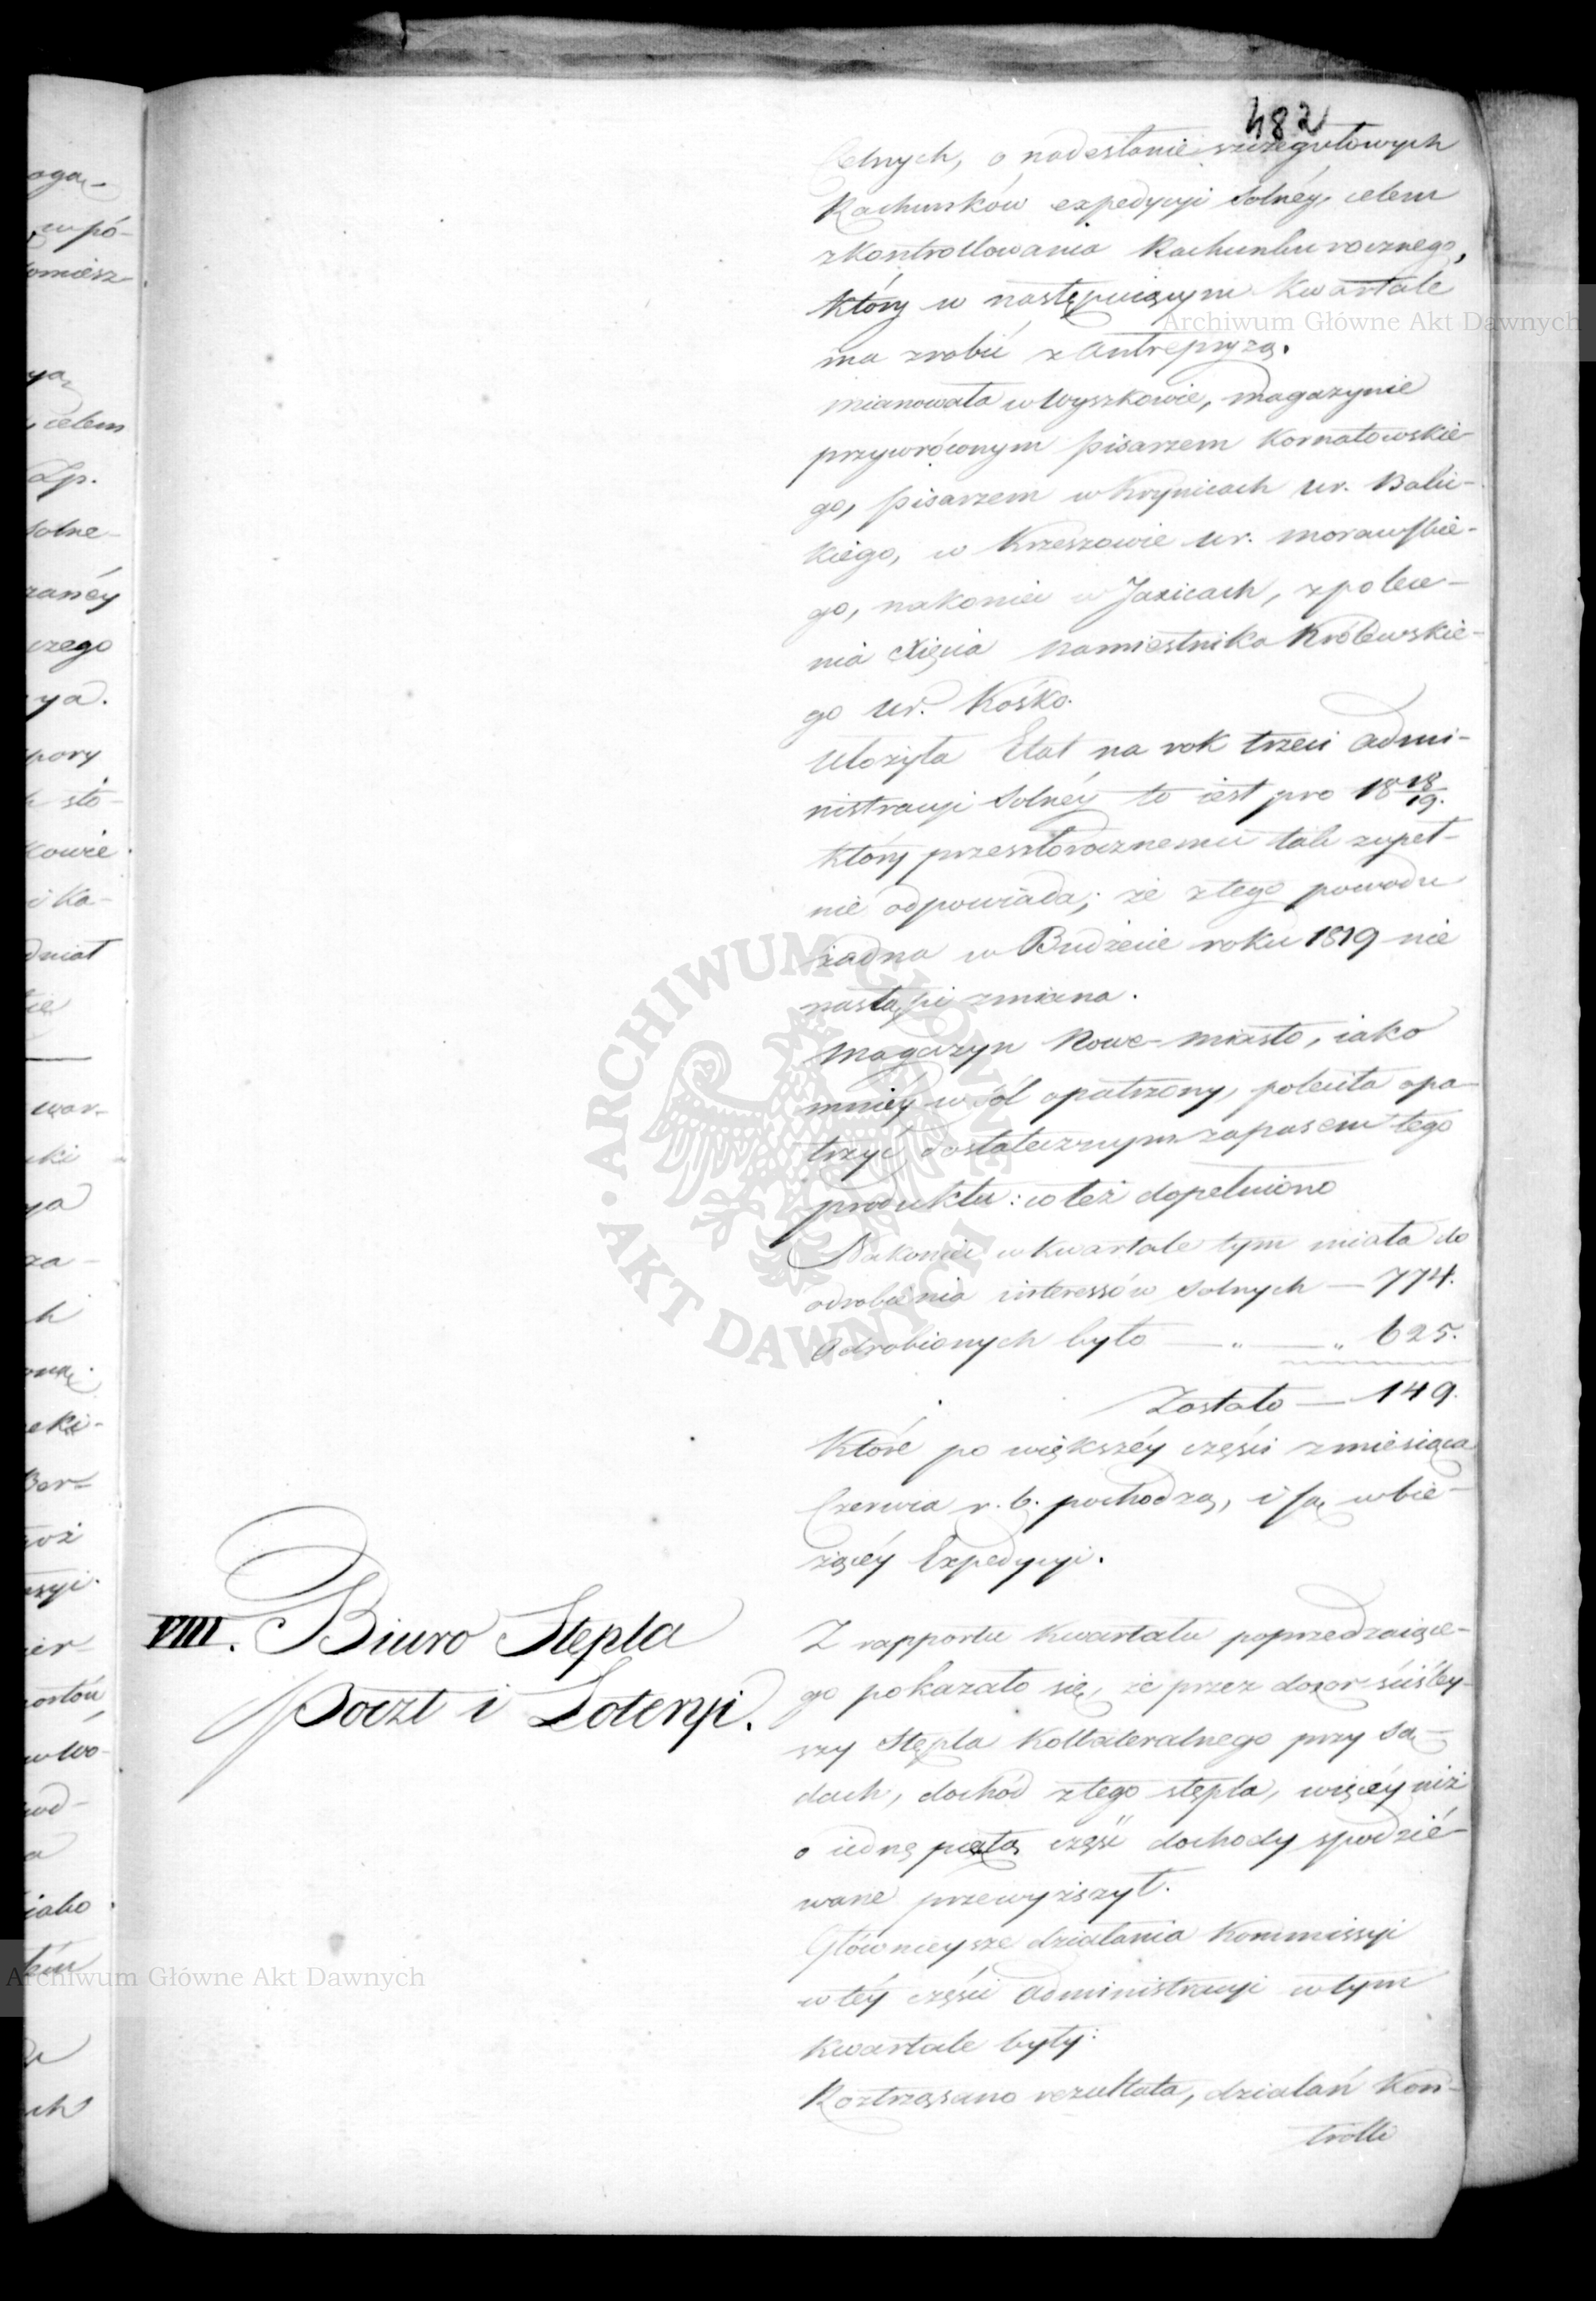 482
Celnych, o nadesłanie szczegułowych
Rachunków expedycyi Solnéy, celem
zkontrollowania Rachunku rocznego,
który w następuiącym kwartale
ma zrobić z Antrepryzą.
mianowała w Wyszkowie, magazynie
przywróconym pisarzem Kornatowskie-
go, pisarzem w Krynicach Ur. Balic-
kiego, w Krzeszowie Ur. Morawskie-
go, nakoniec w Jaxicach, z polece-
nia Xięcia Namiestnika Królewskie-
go Ur. Kośko.
Ułożyła Etat na rok trzeci admi-
nistracyi Solnéy to iest pro 18 18/19.
który przeszłorocznemu tak zupeł-
nie odpowiada; że z tego powodu
żadna w Budżecie roku 1819 nie
nastąpi zmiana.
Magazyn Nowe-miasto, iako
mniéy w Sól opatrzony, poleciła opa-
trzyć dostatecznym zapasem tego
produktu: co też dopełniono
Nakoniec w kwartale tym miała do
odrobienia interessów Solnych — 774.
Odrobionych było — " — " 625.
Zostało — 149.
Które po większéy części z miesiąca
Czerwca r. b. pochodzą, i są w bie-
żącéy Expedycyi.
VIII. Biuro Stępla
Poczt i Loteryi.
Z rapportu kwartału poprzedzaiące-
go pokazało się, że przez dozór ściśley-
szy Stępla Kollateralnego przy Są-
dach, dochód z tego stępla, więcéy niż
o iedną piątą część dochody spodzié-
wane przewyższył.
Główneysze działania Kommissyi
w téy części administracyi w tym
kwartale były:
Roztrząsano rezultata, działań Kon-
trolli
Archiwum Główne Akt Dawnych
ARCHIWUM GŁÓWNE AKT DAWNYCH
Archiwum Główne Akt Dawnych